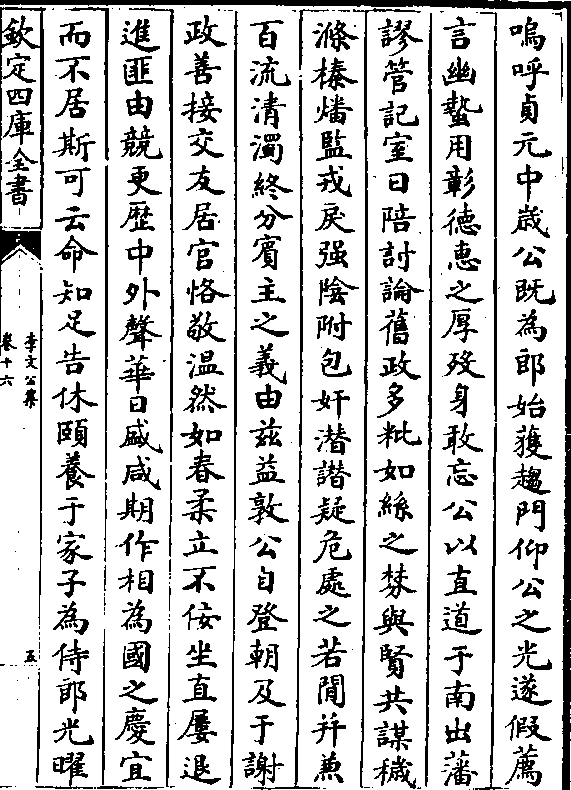 嗚呼貞元中歲公既為郎始獲趨門仰公之光遂假薦
言幽蟄用彰德惠之厚歿身敢忘公以直道于南出藩
謬管記室日陪討論舊政多粃如絲之棼與賢共謀穢
滌榛燔監戎戾强陰附包奸潛譖疑危處之若閒并兼
百流清濁終分賓主之義由兹益敦公自登朝及于謝
政善接交友居官恪敬温然如春柔立不佞坐直屢退
進匪由競更歷中外聲華日盛咸期作相為國之慶宜
而不居斯可云命知足告休頤養于家子為侍郎光曜
欽定四庫全書
李文公集
卷十六
五